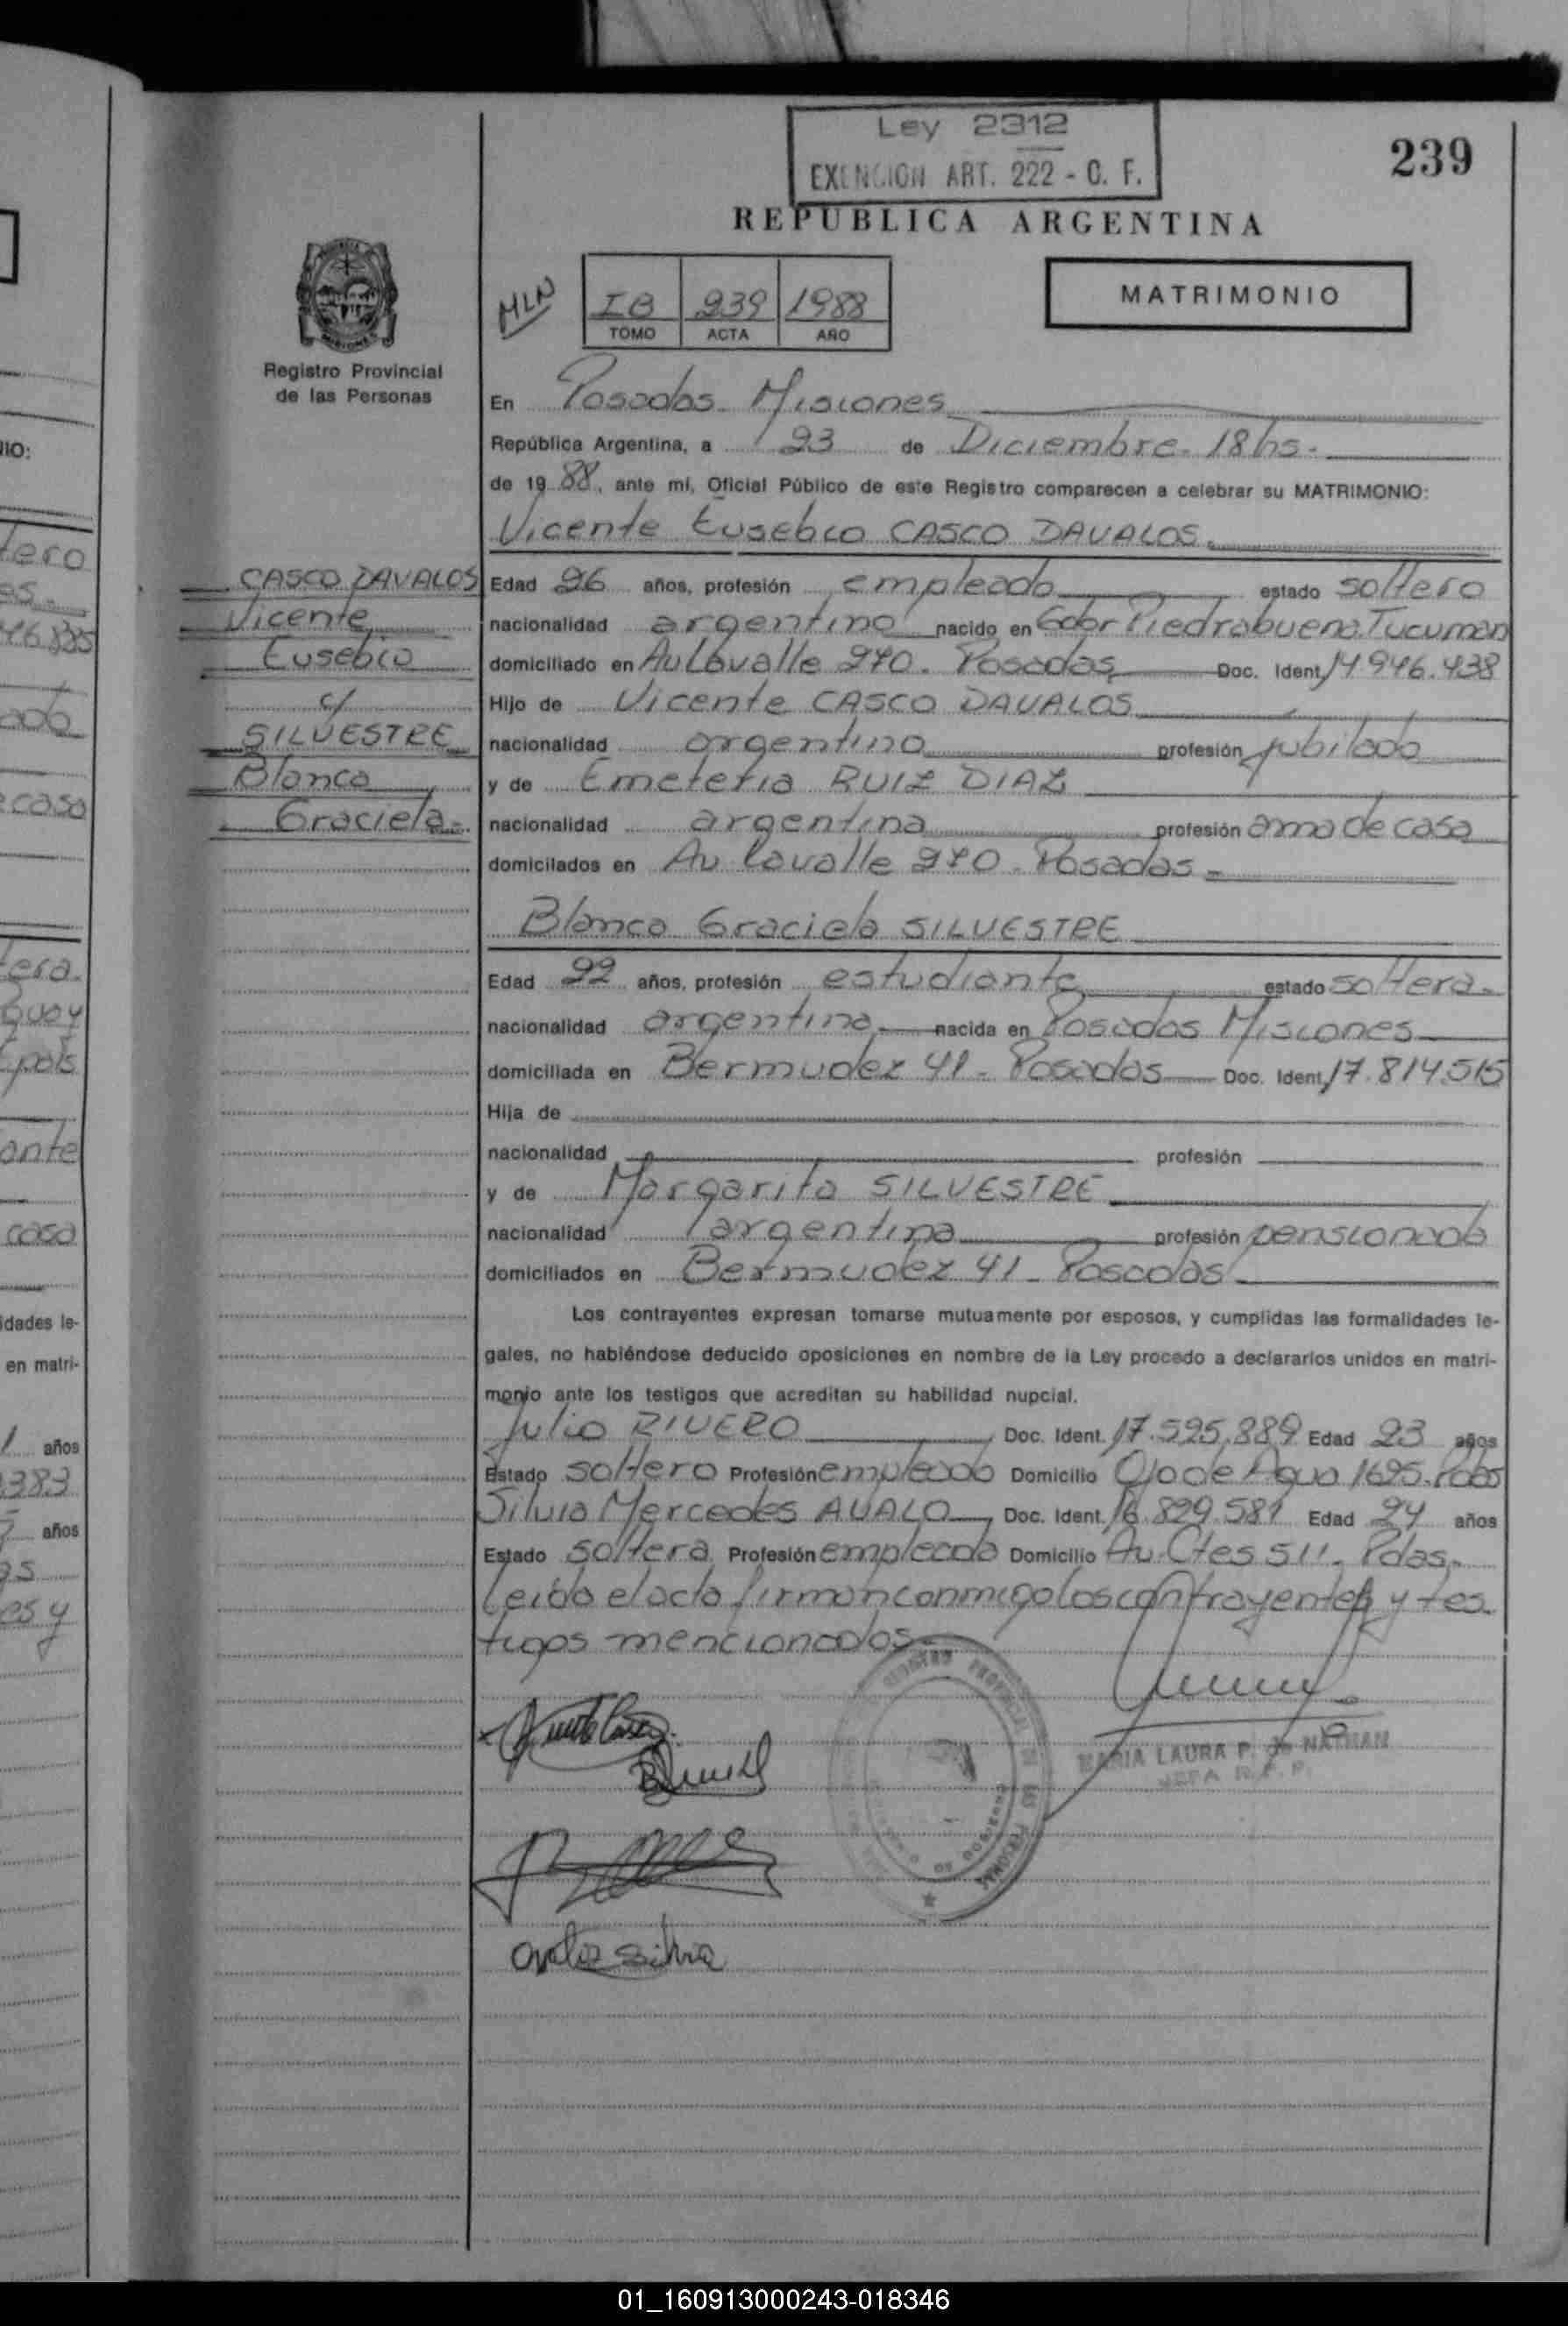 Ley 2312
EXENCION ART. 222 - C. F.
239
REPUBLICA ARGENTINA
MLN
IB 239 1988
TOMO ACTA AÑO
MATRIMONIO
Registro Provincial
de las Personas
En Posadas Misiones
República Argentina, a 23 de Diciembre. 18hs.
de 1988, ante mí, Oficial Público de este Registro comparecen a celebrar su MATRIMONIO:
Vicente Eusebio CASCO DAVALOS.
CASCO DAVALOS
Vicente
Eusebio
c/
SILVESTRE
Blanca
Graciela-
Edad 26 años, profesión empleado estado soltero
nacionalidad argentino nacido en Gobr Piedrabuena. Tucuman
domiciliado en Av Lavalle 970. Posadas Doc. Ident. 14.946.438
Hijo de Vicente CASCO DAVALOS
nacionalidad argentino profesión jubilado
y de Emeteria RUIZ DIAZ
nacionalidad argentina profesión ama de casa
domicilados en Av Lavalle 970 - Posadas -
Blanca Graciela SILVESTRE
Edad 22 años, profesión estudiante estado soltera.
nacionalidad argentina nacida en Posadas Misiones
domiciliada en Bermudez 41 - Posadas Doc. Ident. 17.814515
Hija de
nacionalidad profesión
y de Margarita SILVESTRE
nacionalidad argentina profesión pensionada
domiciliados en Bermudez 41 - Posadas
Los contrayentes expresan tomarse mutuamente por esposos, y cumplidas las formalidades le-
gales, no habiéndose deducido oposiciones en nombre de la Ley procedo a declararlos unidos en matri-
monio ante los testigos que acreditan su habilidad nupcial.
Julio RIVERO Doc. Ident. 17.525.389 Edad 23 años
Estado soltero Profesión empleado Domicilio Ojo de Agua 1695. Pdas
Silvia Mercedes AVALO Doc. Ident. 16.829.581 Edad 24 años
Estado soltera Profesión empleada Domicilio Av. Ctes 511. Pdas.
Leida el acta firman conmigo los contrayentes y tes
tigos mencionados.
MARIA LAURA P. de NATMAN
JEFA R. P. P.
REGISTRO PROVINCIAL DE LAS PERSONAS
silvia
tero
es.
caso
tera.
ante
casa
idades le-
en matri-
años
383
años
es y
01_160913000243-018346